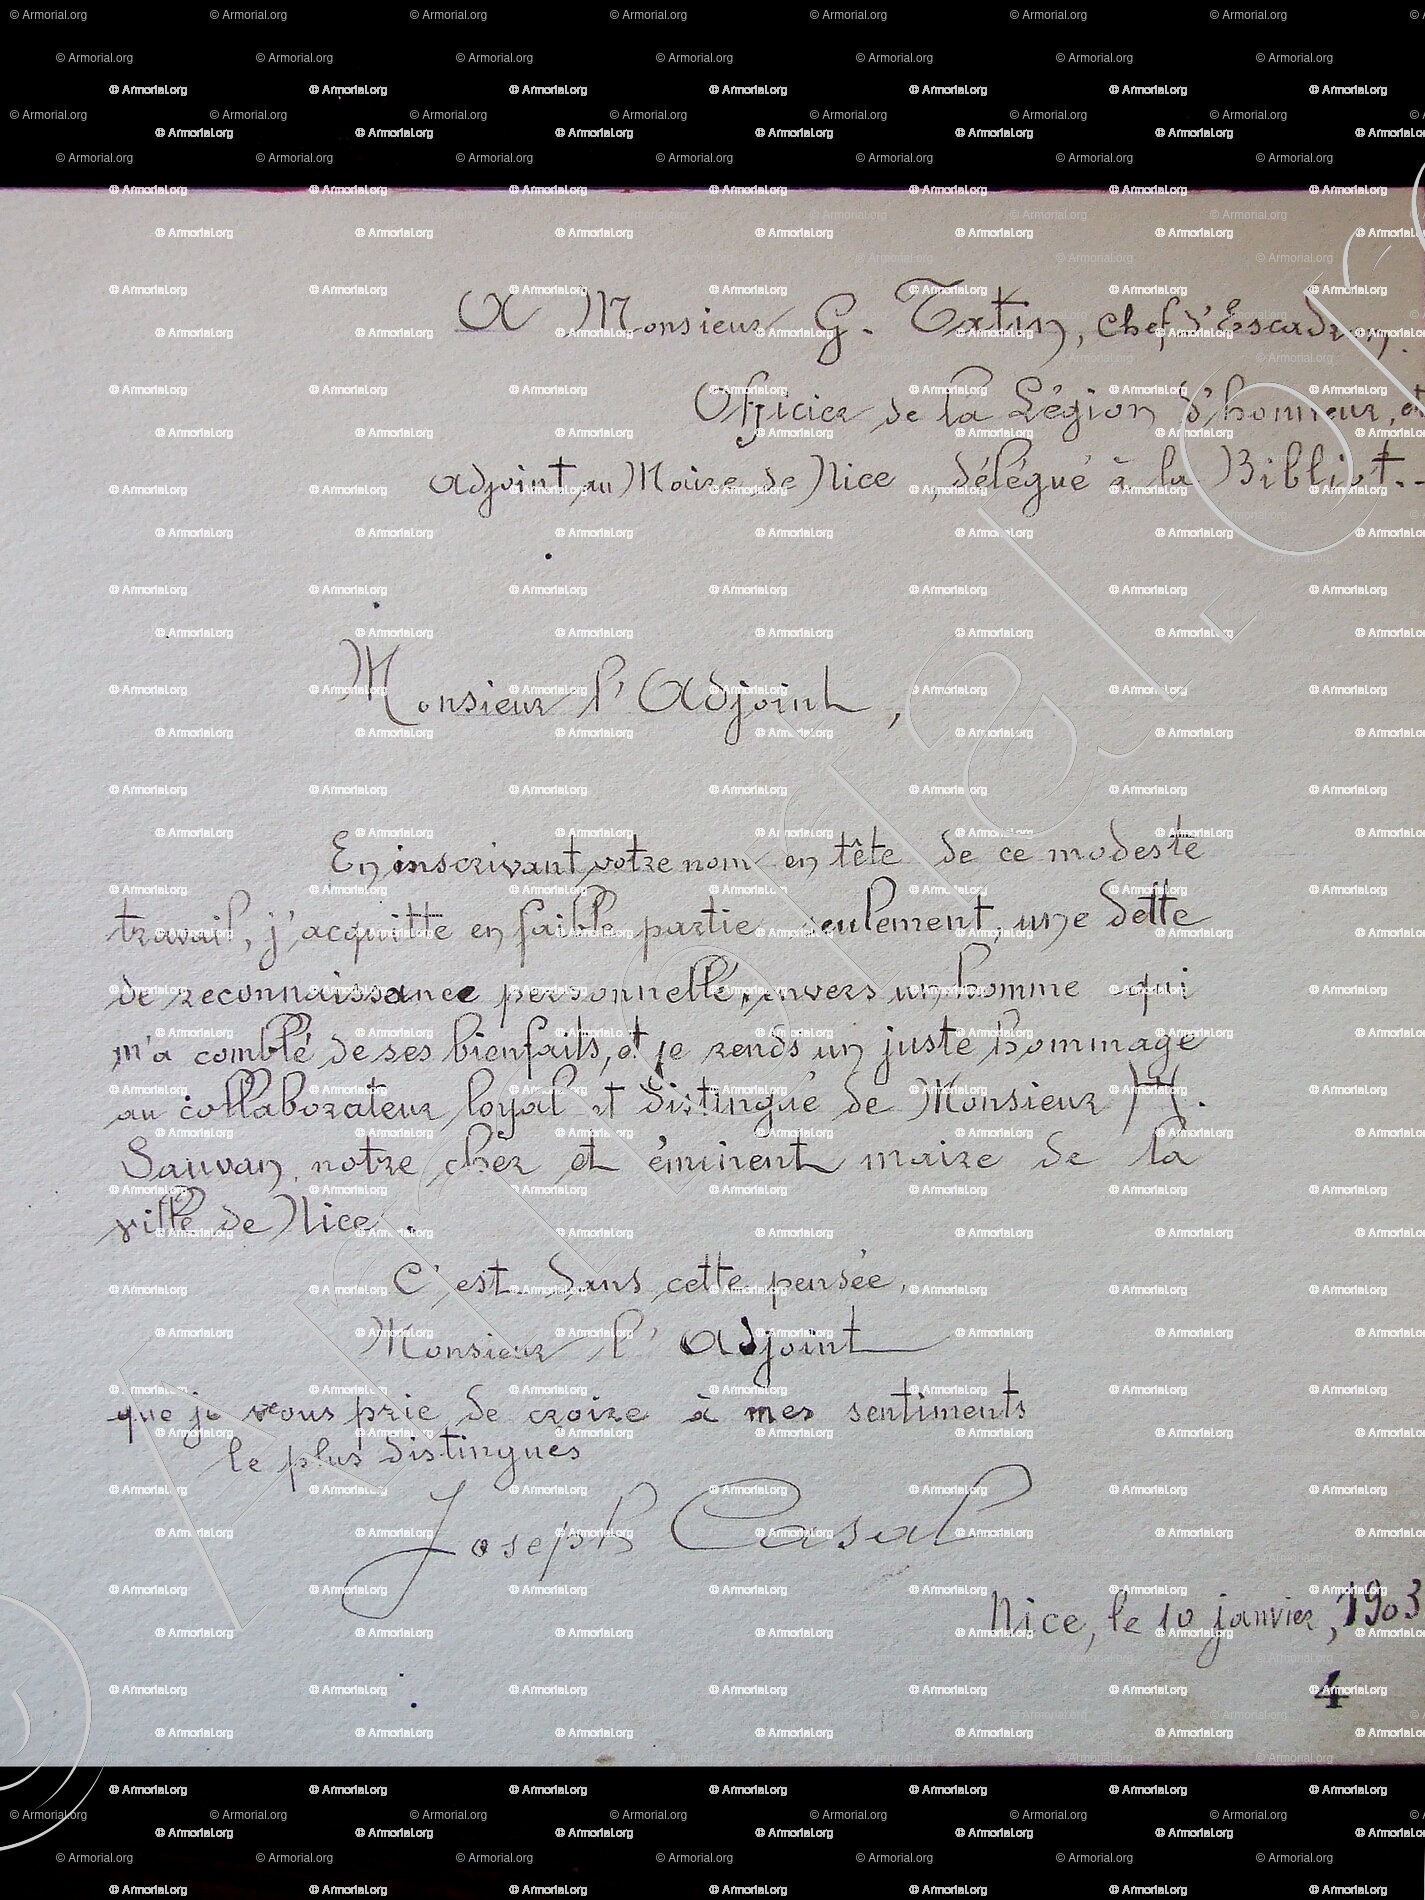 A Monsieur G. Tatin, chef d'Escadron.
Officier de la Légion d'honneur, et
adjoint au Maire de Nice, délégué à la Bibliot..
Monsieur l'Adjoint,
En inscrivant votre nom en tête de ce modeste
travail, j'acquitte en faible partie seulement, une dette
de reconnaissance personnelle, envers un homme qui
m'a comblé de ses bienfaits, et je rends un juste hommage
au collaborateur loyal et distingué de Monsieur H.
Sauvan, notre cher et éminent maire de la
ville de Nice.
C'est dans cette pensée,
Monsieur l'Adjoint
que je vous prie de croire à mes sentiments
le plus distingués
Joseph Casal
Nice, le 10 janvier, 1903
4
© Armorial.org